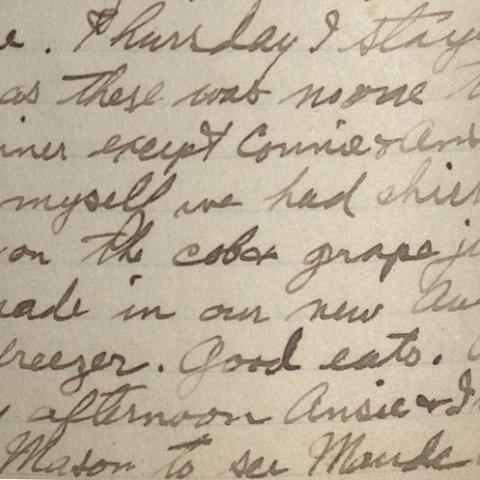 e. Thursday I stay
as there was noone t
iner except Connie & Ann
myself we had
on the cob & grape ju
ade in our new
freezer. Good eats.
afternoon Ansie & I
Mason to see Maude